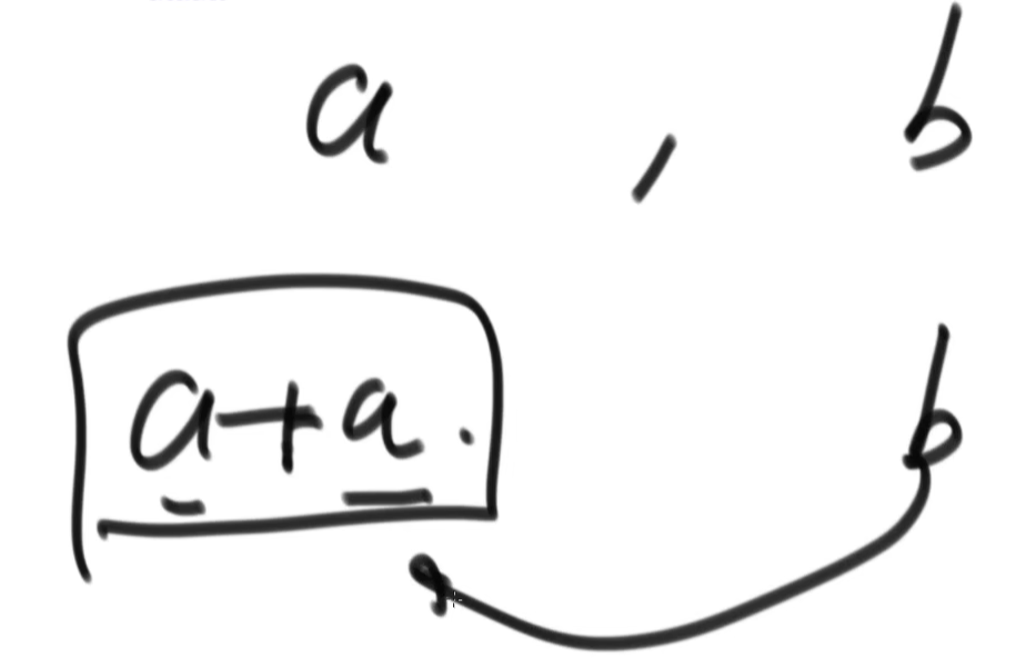 a , b
a+a. b